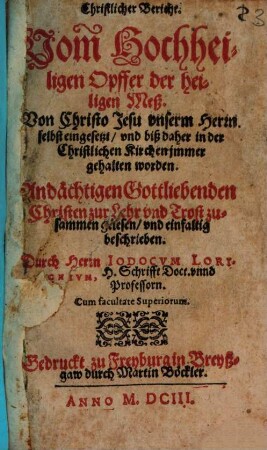 Christlicher Bericht.
Vom̃ Hochhei-
ligen Opffer der hei-
ligen Meß.
Von Christo Jesu vnserm Herrn
selbst eingesetzt / vnd biß daher in der
Christlichen Kirchen jmmer
gehalten worden.
Andächtigen Gottliebenden
Christen zur Lehr vnd Trost zu-
sammen gelesen / vnd einfaltig
beschrieben.
Durch Herrn IODOCVM LORI-
CHIVM, H. Schrifft Doct. vnnd
Professorn.
Cum facultate Superiorum.
Gedruckt zu Freyburg in Breyß-
gaw durch Martin Böckler.
ANNO M. DCIII.